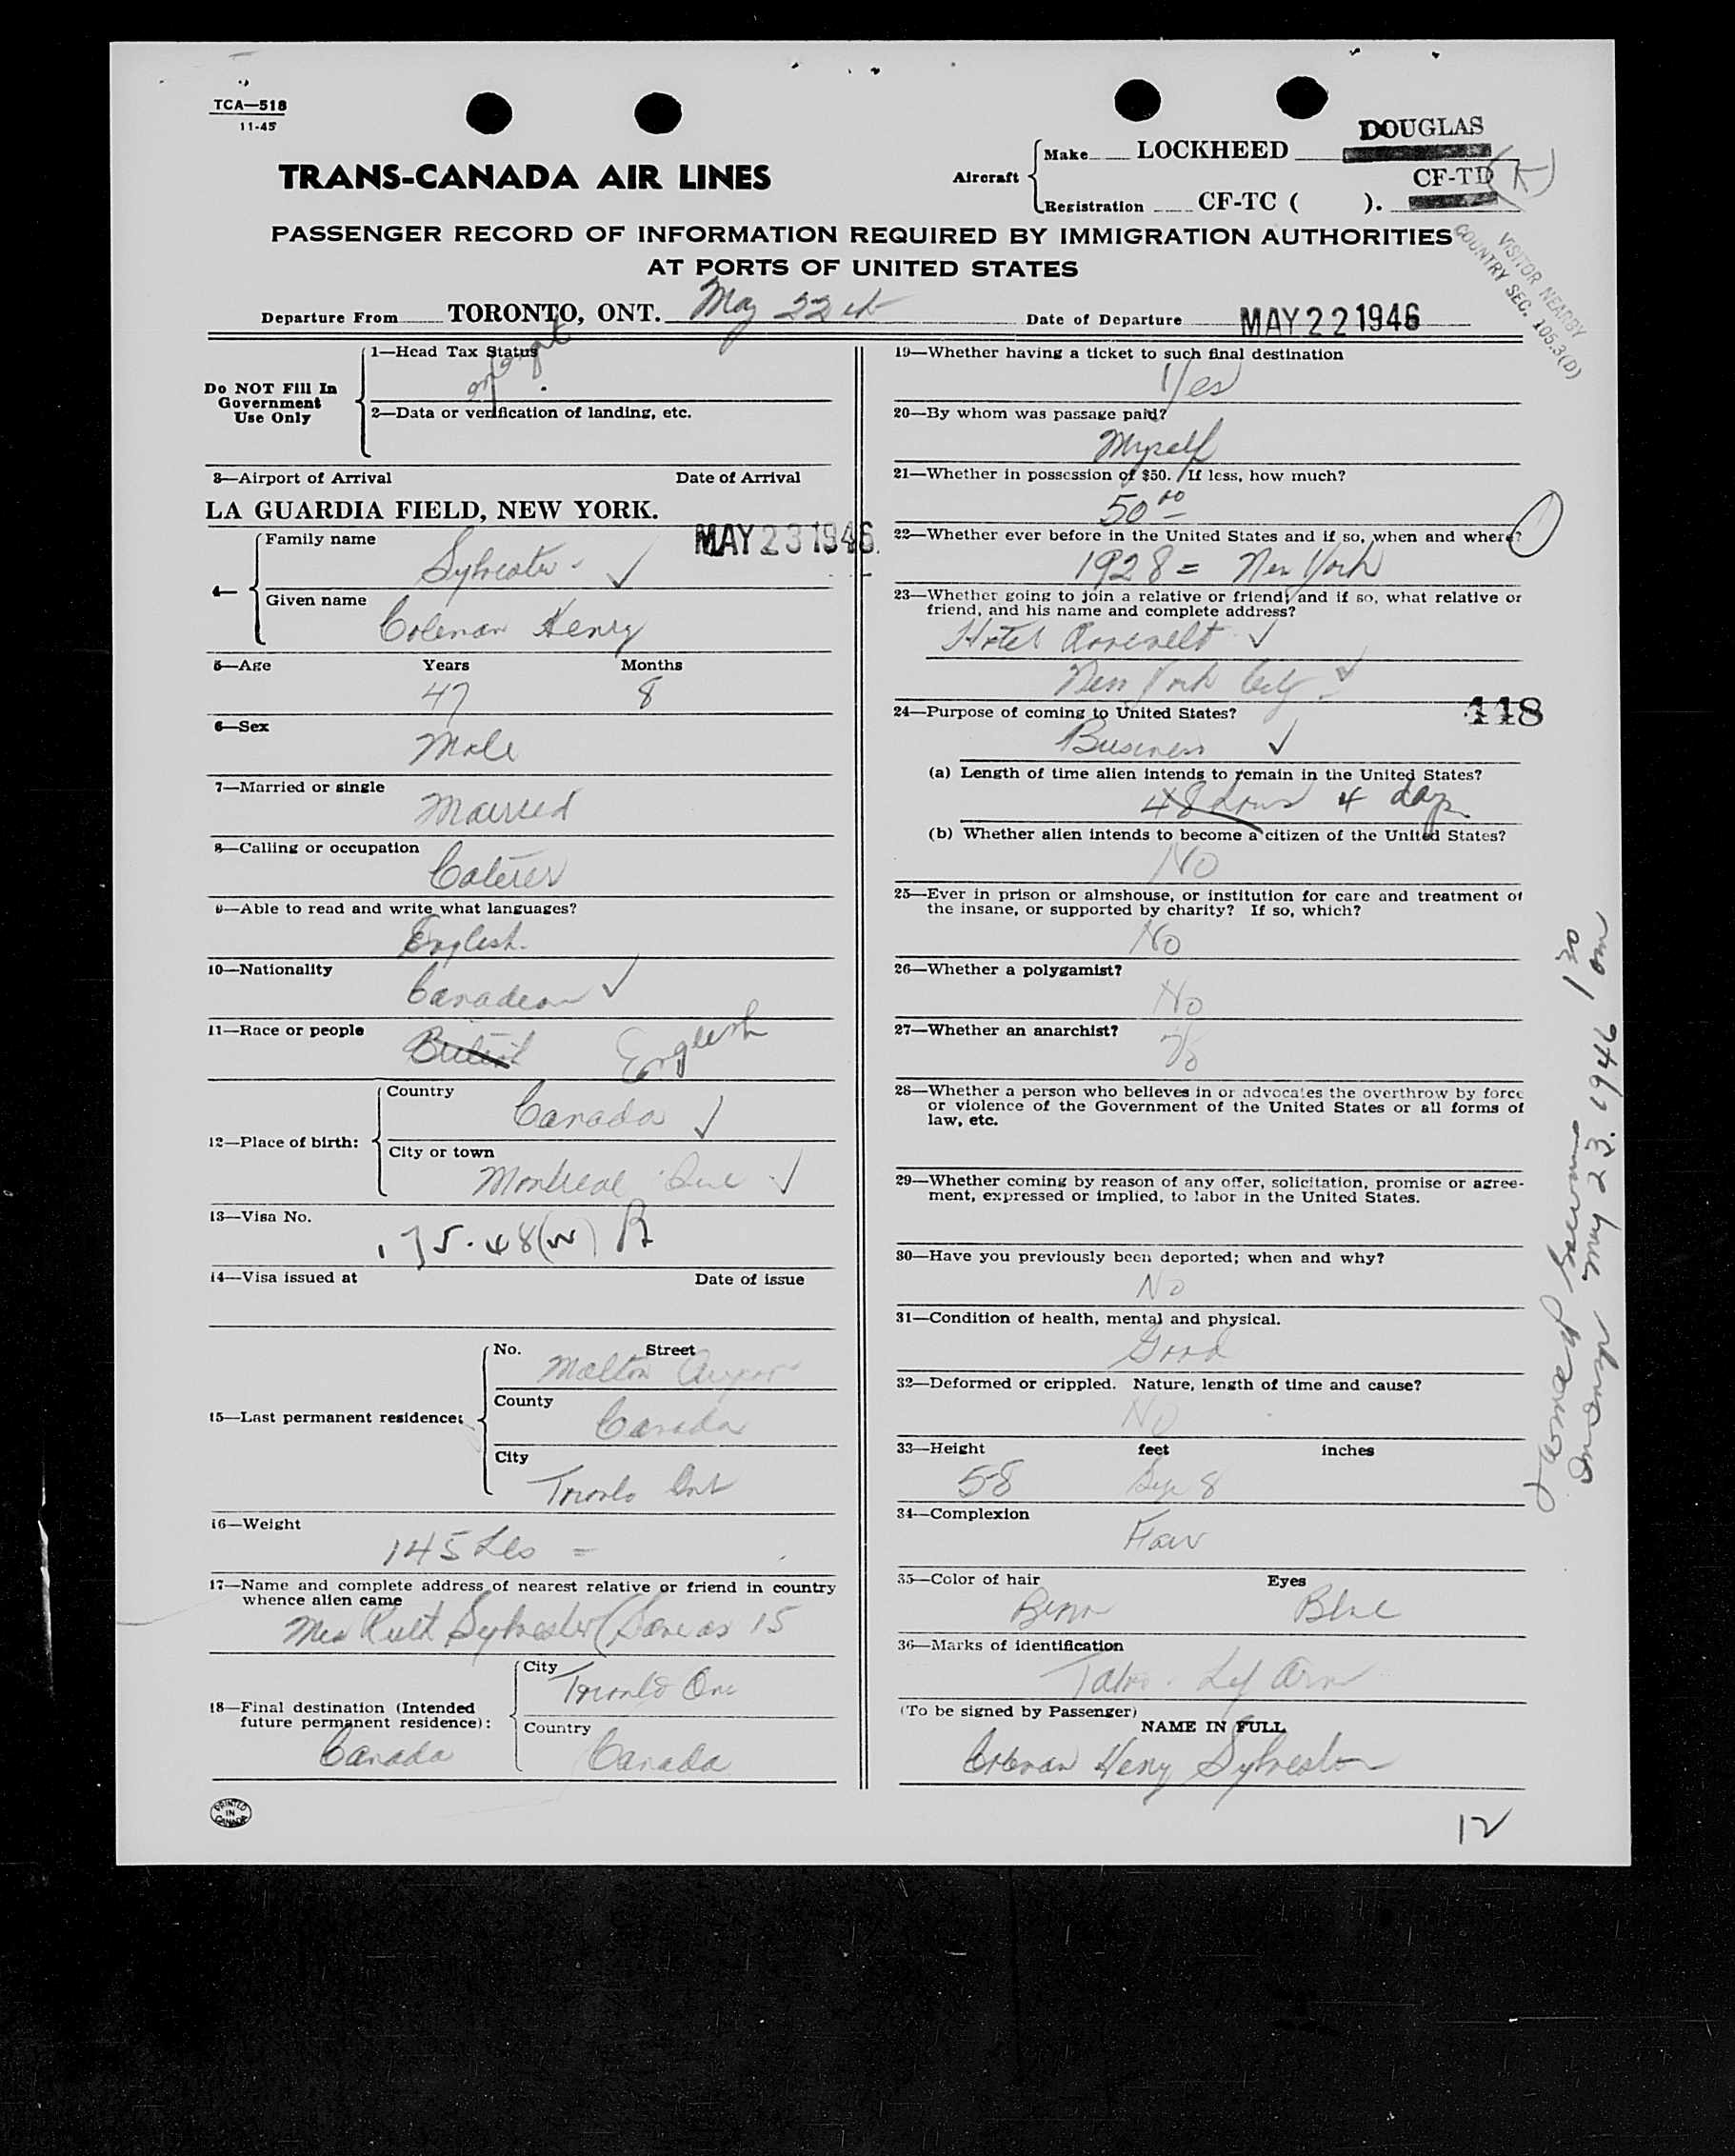 TCA—518
11-45
DOUGLAS
Make LOCKHEED
TRANS-CANADA AIR LINES
Aircraft
CF-TD (K)
Registration CF-TC ( ).
PASSENGER RECORD OF INFORMATION REQUIRED BY IMMIGRATION AUTHORITIES
AT PORTS OF UNITED STATES
VISITOR NEARBY
COUNTRY SEC. 105.3(D)
Departure From TORONTO, ONT. May 22 Date of Departure MAY 22 1946
Do NOT Fill In
Government
Use Only
1—Head Tax Status
exempt
2—Data or verification of landing, etc.
3—Airport of Arrival Date of Arrival
LA GUARDIA FIELD, NEW YORK.
MAY 23 1946
4—
Family name
Sylvester
Given name
Coleman Henry
5—Age Years Months
47 8
6—Sex
Male
7—Married or single
Married
8—Calling or occupation
Caterer
9—Able to read and write what languages?
English.
10—Nationality
Canadian
11—Race or people
British English
12—Place of birth:
Country
Canada
City or town
Montreal Que
13—Visa No.
175.48(W) R
14—Visa issued at Date of issue
15—Last permanent residence:
No. Street
Malton Airport
County
Canada
City
Toronto Ont
16—Weight
145 Lbs =
17—Name and complete address of nearest relative or friend in country
whence alien came
Mrs Ruth Sylvester (Same as 15
18—Final destination (Intended
future permanent residence):
Canada
City
Toronto Ont
Country
Canada
PRINTED
IN
CANADA
19—Whether having a ticket to such final destination
Yes
20—By whom was passage paid?
Myself
21—Whether in possession of $50. If less, how much?
50 00
22—Whether ever before in the United States and if so, when and where?
1928 = New York
23—Whether going to join a relative or friend; and if so, what relative or
friend, and his name and complete address?
Hotel Roosevelt
New York City
118
24—Purpose of coming to United States?
Business
(a) Length of time alien intends to remain in the United States?
48 hours 4 days
(b) Whether alien intends to become a citizen of the United States?
No
25—Ever in prison or almshouse, or institution for care and treatment of
the insane, or supported by charity? If so, which?
No
26—Whether a polygamist?
No
27—Whether an anarchist?
No
28—Whether a person who believes in or advocates the overthrow by force
or violence of the Government of the United States or all forms of
law, etc.
29—Whether coming by reason of any offer, solicitation, promise or agree-
ment, expressed or implied, to labor in the United States.
30—Have you previously been deported; when and why?
No
31—Condition of health, mental and physical.
Good
32—Deformed or crippled. Nature, length of time and cause?
No
33—Height feet inches
58 8
34—Complexion
Fair
35—Color of hair Eyes
Brown Blue
36—Marks of identification
Tatoo. Left Arm
(To be signed by Passenger)
NAME IN FULL
Coleman Henry Sylvester
12
May 23. 1946 1 30 am